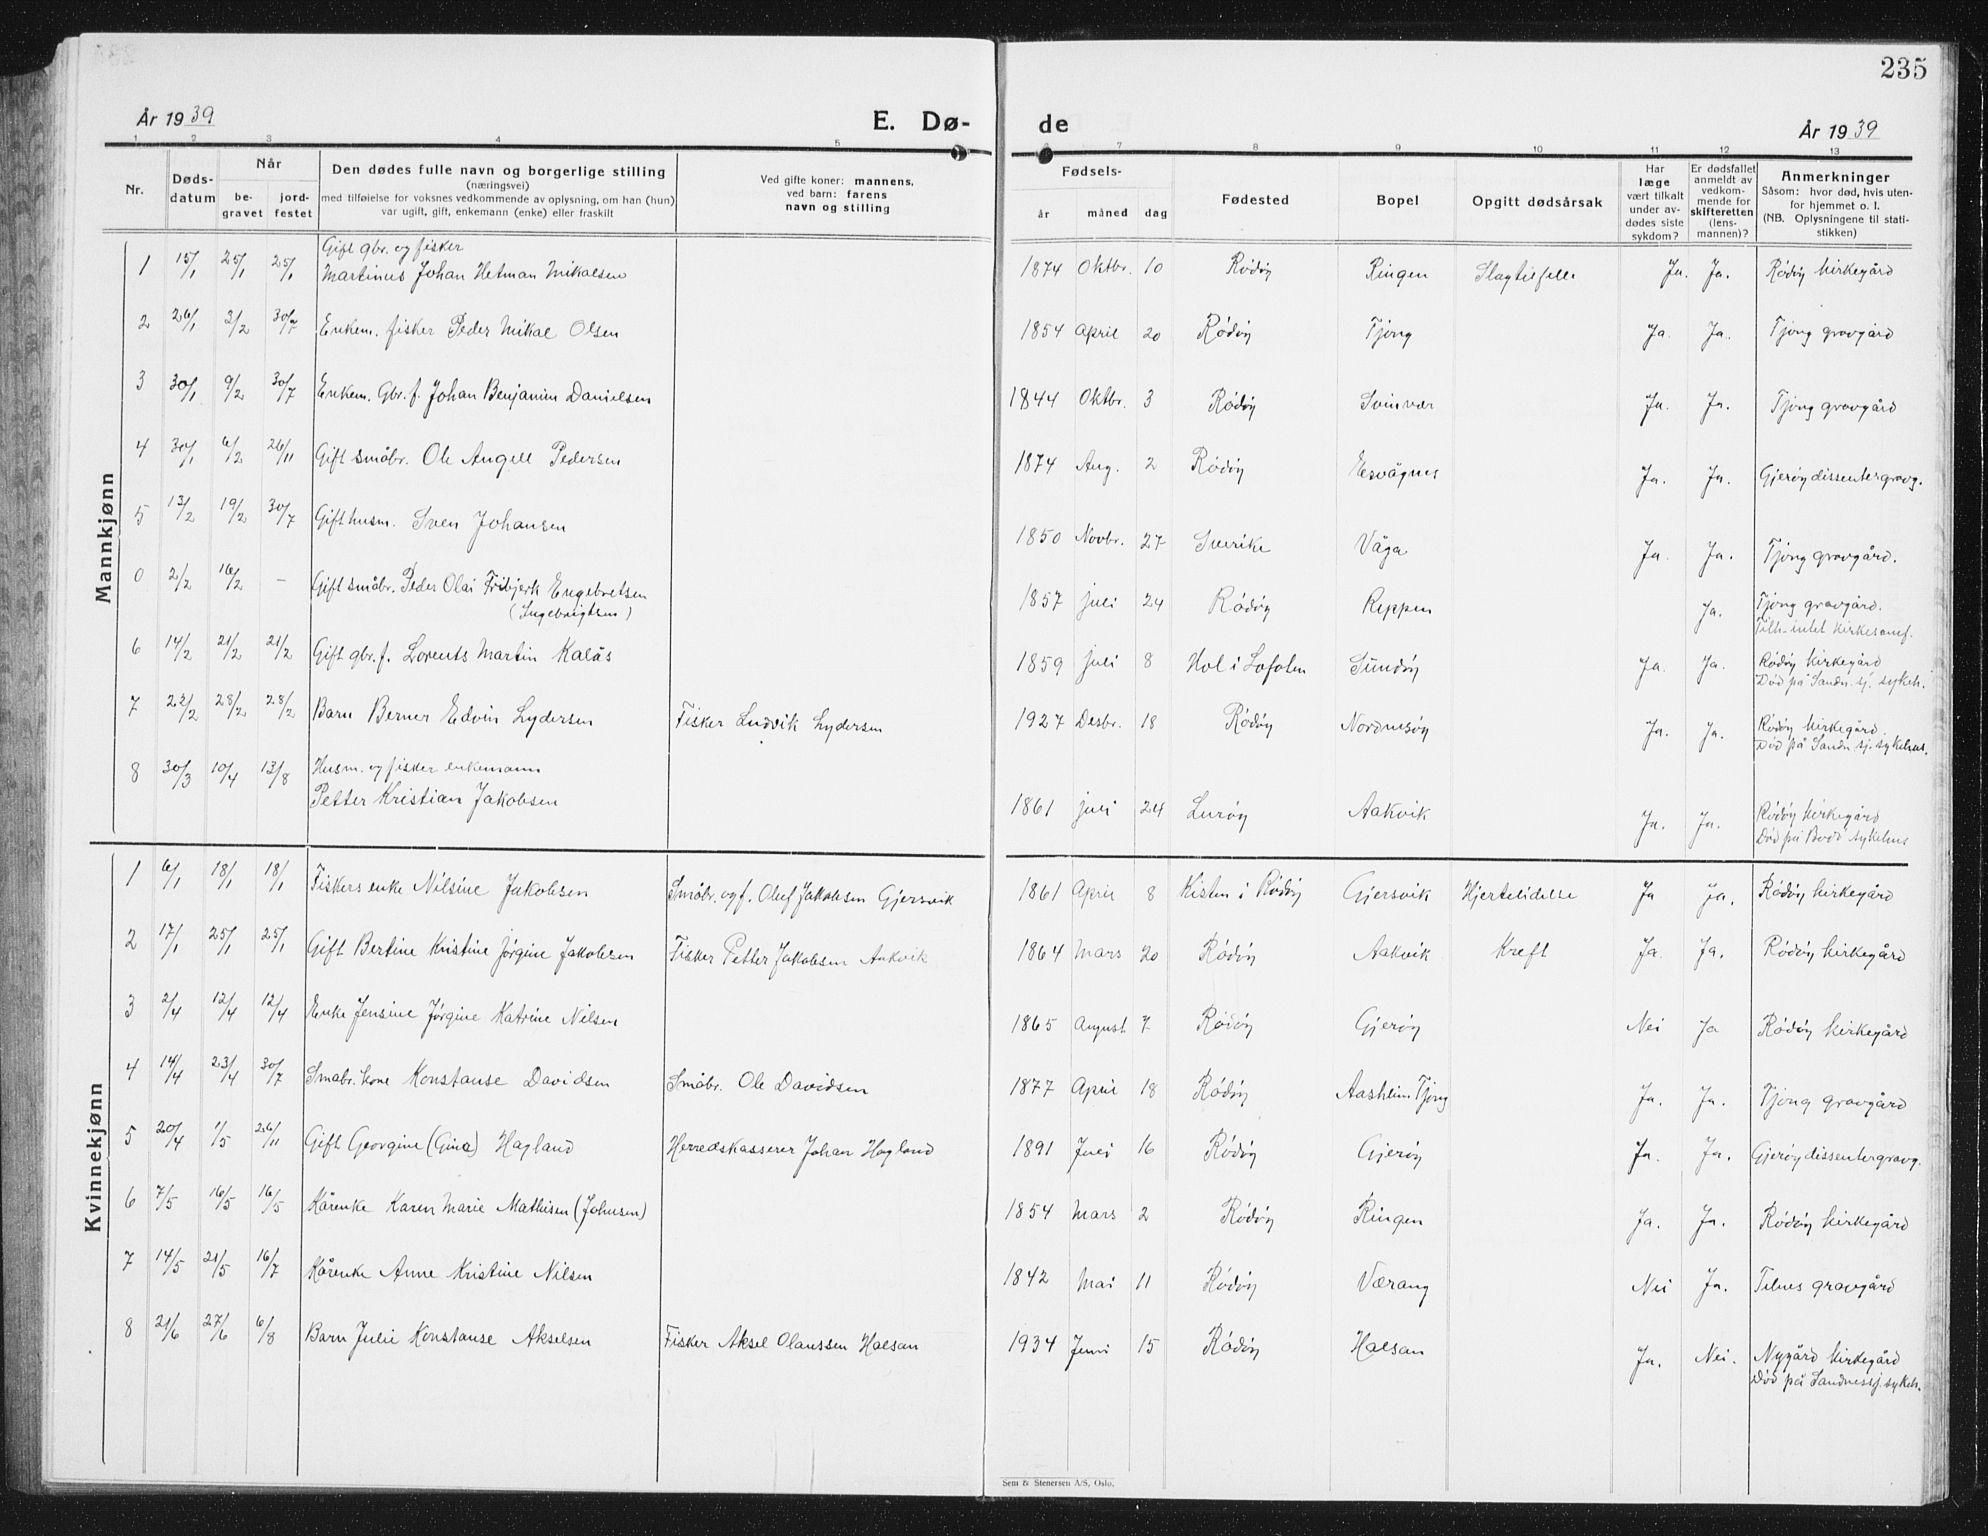 235
År 1939
E. Dø-
de
År 1939
1 2 3 4 5 6 7 8 9 10 11 12 13
Nr.
Døds-
datum
Når
be-
gravet
jord-
festet
Den dødes fulle navn og borgerlige stilling
(næringsvei)
med tilføielse for voksnes vedkommende av oplysning, om han (hun)
var ugift, gift, enkemann (enke) eller fraskilt
Ved gifte koner: mannens,
ved barn: farens
navn og stilling
Fødsels-
år måned dag
Fødested
Bopel
Opgitt dødsårsak
Har
læge
vært tilkalt
under av-
dødes siste
sykdom?
Er dødsfallet
anmeldt av
vedkom-
mende for
skifteretten
(lens-
mannen)?
Anmerkninger
Såsom: hvor død, hvis uten-
for hjemmet o. l.
(NB. Oplysningene til stati-
stikken)
Mannkjønn
Gift gbr. og fisker
1 15/1 25/1 25/1 Martinus Johan Hetman Mikalsen 1874 Oktbr. 10 Rödöy Ringen Slagtilfelle Ja. Ja. Rödöy kirkegård
2 26/1 3/2 30/7 Enkem. fisker Peder Mikal Olsen 1854 April 20 Rödöy Tjong Ja. Ja. Tjong gravgård
3 30/1 9/2 30/7 Enkem. Gbr. f. Johan Benjamin Danielsen 1844 Oktbr. 3 Rödöy Svinvær Ja. Ja. Tjong gravgård
4 30/1 6/2 26/11 Gift småbr. Ole Angell Pedersen 1874 Aug. 2 Rödöy Esvågnes Ja. Ja. Gjeröy dissentergravg.
5 13/2 19/2 30/7 Gift husm. Sven Johansen 1850 Novbr. 27 Sverike Våga Ja. Ja. Tjong gravgård.
0 2/2 16/2 – Gift småbr. Peder Olai Fribjerk Engebretsen 1857 juli 24 Rödöy Reppen Ja. Tjong gravgård.
(Ingebrigtsen) Tilh. intet kirkesamf.
6 14/2 21/2 21/2 Gift gbr. f. Lorents Martin Kalås 1859 juli 8 Hol i Lofoten Sundöy Ja. Ja. Rödöy kirkegård
Död på Sandn.sj. sykeh.
7 22/2 28/2 28/2 Barn Berner Edvin Lydersen Fisker Ludvik Lydersen 1927 Desbr. 18 Rödöy Nordnesöy Ja. Ja. Rödöy kirkegård.
Död på Sandn.sj. sykehus.
Husm. og fisker enkemann
8 30/3 10/4 13/8 Petter Kristian Jakobsen 1861 juli 24 Luröy Aakvik Ja. Ja. Rödöy kirkegård
Död på Bodö sykehus
Kvinnekjønn
1 6/1 18/1 18/1 Fiskers enke Nilsine Jakobsen Småbr. og f. Oluf Jakobsen Gjersvik 1861 April 8 Kisten i Rödöy Gjersvik Hjertelidelse Ja Ja. Rödöy kirkegård
2 17/1 25/1 25/1 Gift Bertine Kristine Jörgine Jakobsen Fisker Petter Jakobsen Aakvik 1864 Mars 20 Rödöy Aakvik Kreft Ja. Ja. Rödöy kirkegård
3 2/4 12/4 12/4 Enke Jensine Jörgine Katrine Nilsen 1865 August 7 Rödöy Gjeröy Nei Ja Rödöy kirkegård
4 14/4 23/4 30/7 Småbr. kone Konstanse Davidsen Småbr. Ole Davidsen 1877 April 18 Rödöy Aasheim Tjong Ja. Ja. Tjong gravgård
5 20/4 1/5 26/11 Gift Georgine (Gina) Hagland Herredskasserer Johan Hagland 1891 Juli 16 Rödöy Gjeröy Ja. Ja. Gjeröy dissentergravg.
6 7/5 16/5 16/5 Kårenke Karen Marie Mathisen (Johnsen) 1854 Mars 2 Rödöy Ringen Ja. Ja. Rödöy kirkegård
7 14/5 21/5 16/7 Kårenke Anne Kristine Nilsen 1842 Mai 11 Rödöy Værang Nei Ja. Telnes gravgård
8 21/6 27/6 6/8 Barn Julie Konstanse Akselsen Fisker Aksel Olaussen Halsan 1934 Juni 15 Rödöy Halsan Ja. Nei. Nygård kirkegård
Död på Sandnessj. sykeh.
Sem & Stenersen A/S, Oslo.